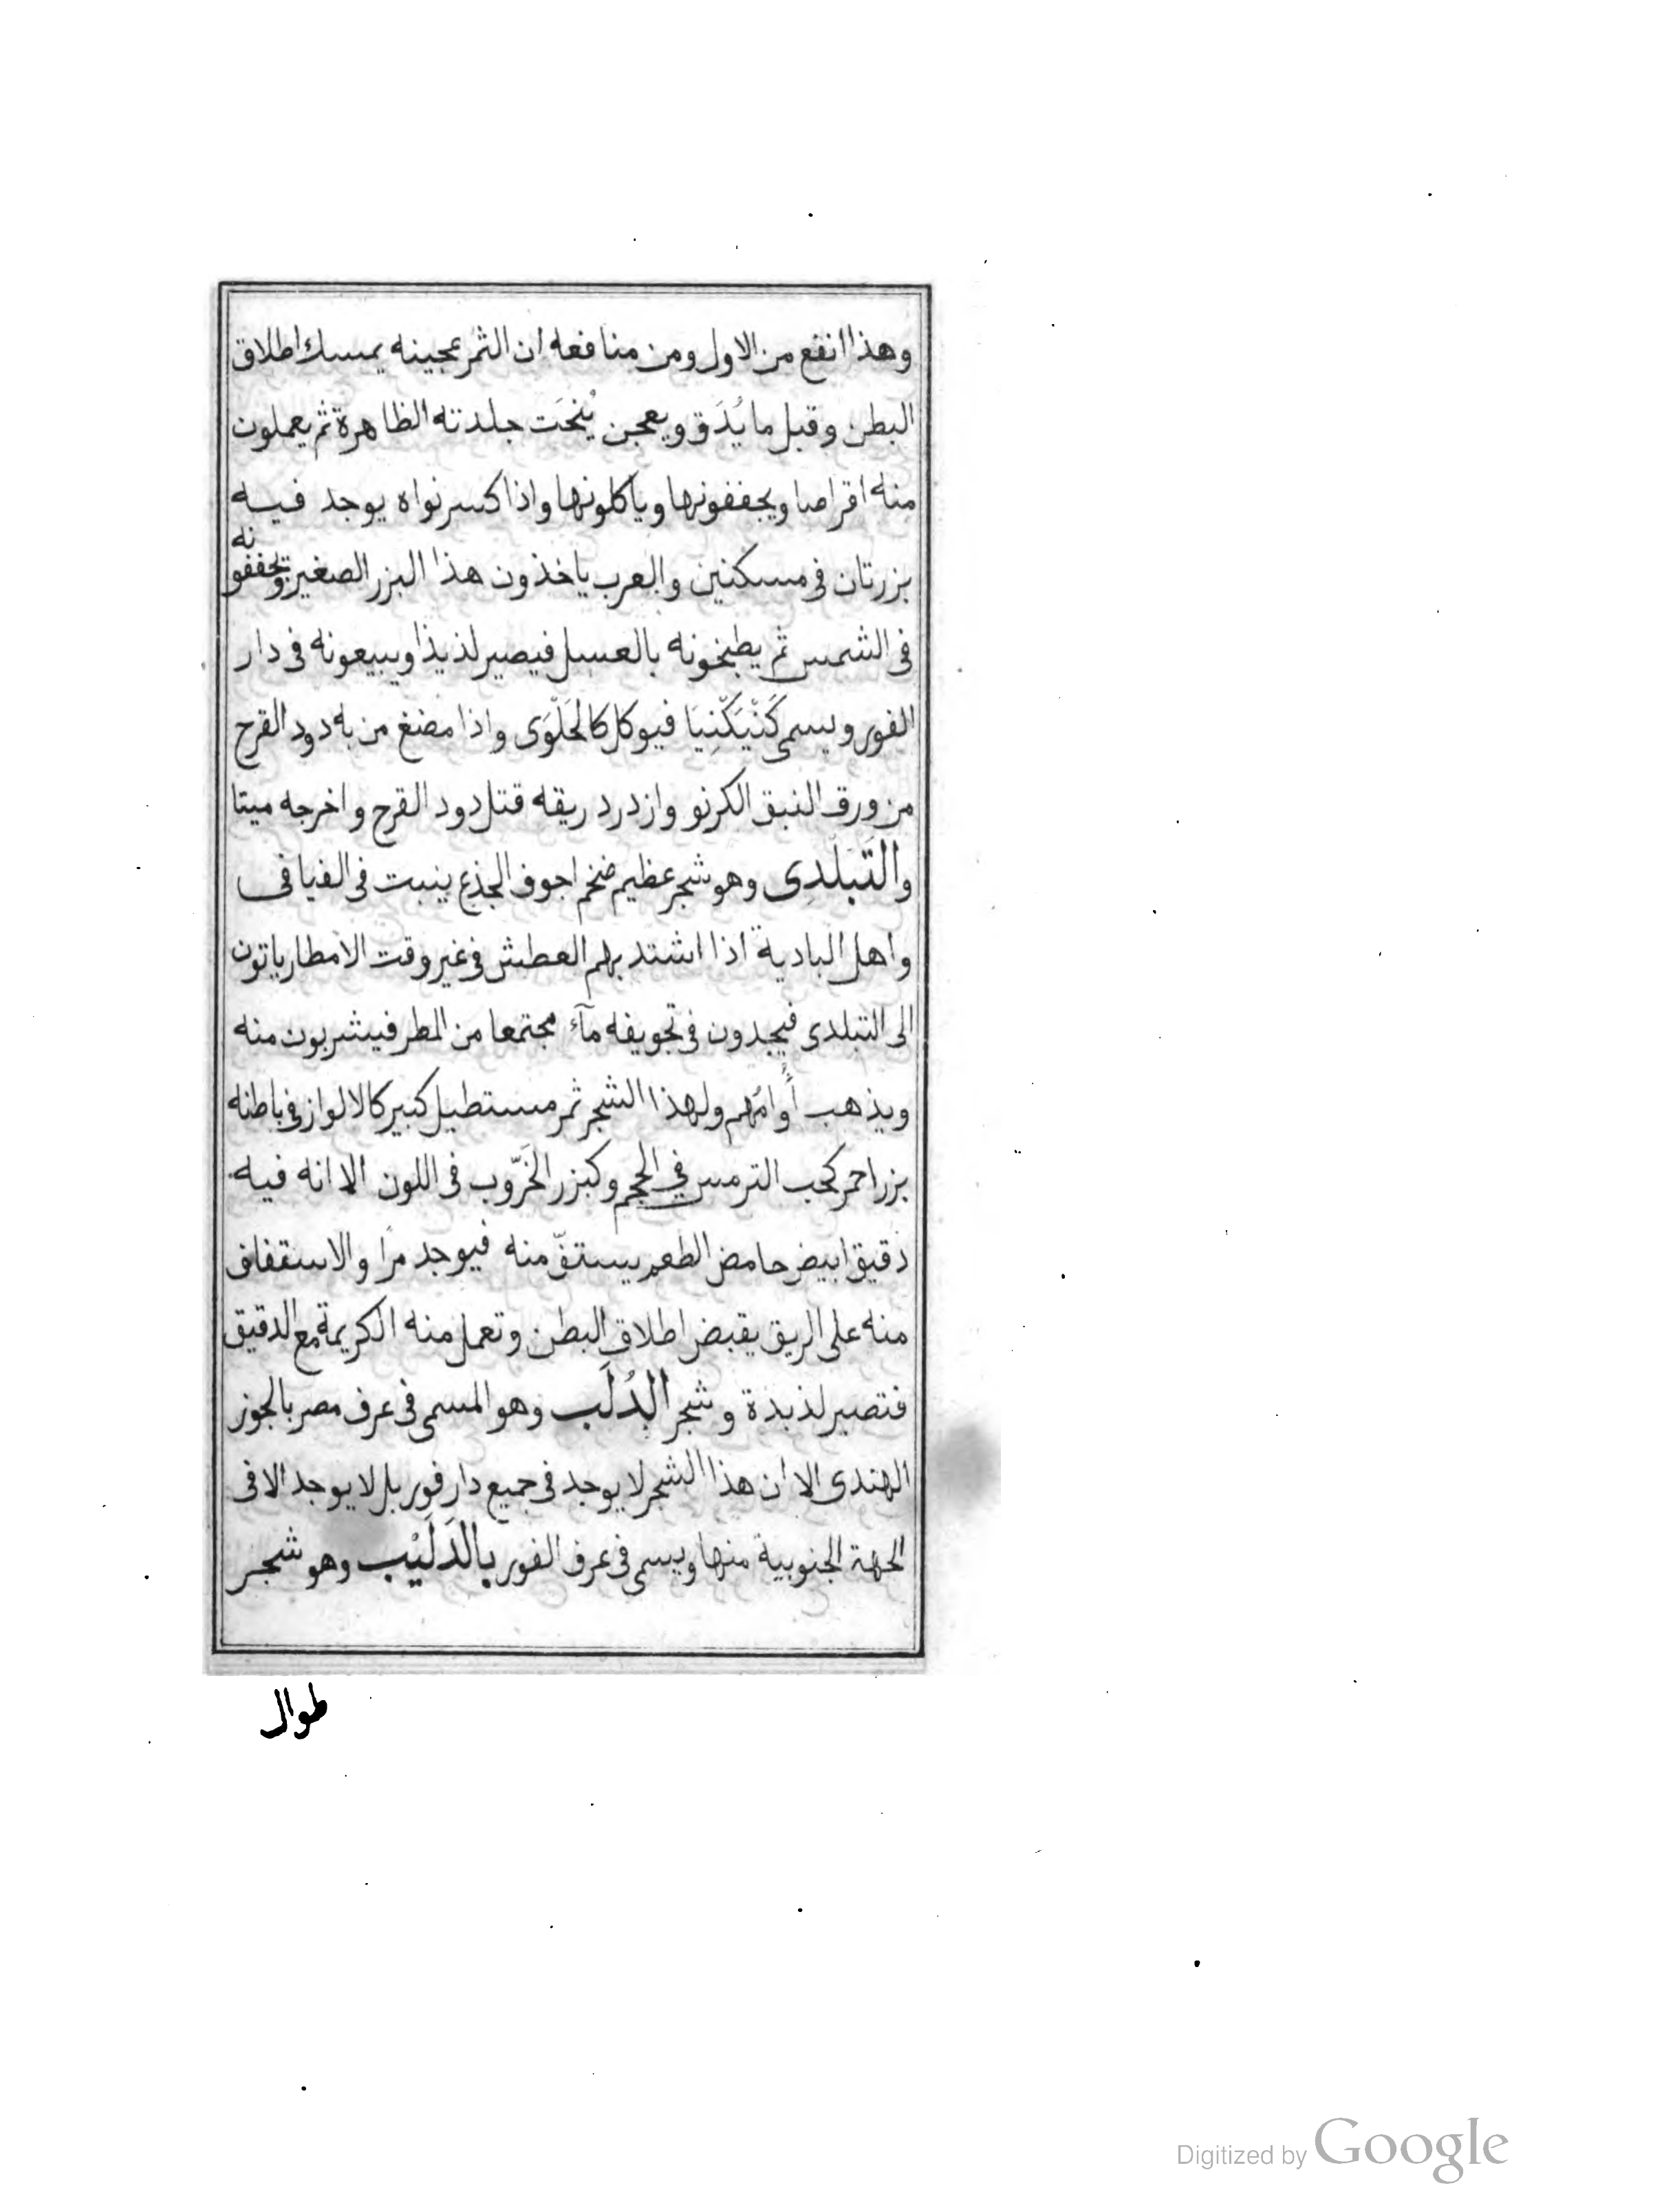 وهذا انفع من الاول ومن منافعه ان الثمر عجينه يمسك اطلاق
البطن وقبل ما يُدَق ويعجن يُنحَت جلدته الظاهرة ثم يعملون
منه اقراصا ويجففونها وياكلونها واذا كسر نواه يوجد فيه
بزرتان فى مسكنين والعرب ياخذون هذا البزر الصغير ويجففونه
فى الشمس ثم يطبخونه بالعسل فيصير لذيذا ويبيعونه فى دار
الفور ويسمى كَنْيَكِّنِيَا فيوكل كالحَلْوَى واذا مضغ من به دود القرح
من ورق النبق الكرنو وازدرد ريقه قتل دود القرح واخرجه ميتا
والتَبَلْدِى وهو شجر عظيم ضخم اجوف الجذع ينبت فى الفيافى
واهل البادية اذا اشتد بهم العطش فى غير وقت الامطار ياتون
الى التبلدى فيجدون فى تجويفه مآء مجتمعا من المطر فيشربون منه
ويذهب أُوامُهم ولهذا الشجر ثمر مستطيل كبير كالالواز فى باطنه
بزر احمر كحب الترمس فى الحجم وكبزر الخَرّوب فى اللون الا انه فيه
دقيق ابيض حامض الطعم يستفّ منه فيوجد مزا والاستفاف
منه على الريق يقبض اطلاق البطن وتعمل منه الكريمة مع الدقيق
فتصير لذبذة وشجر الدُلَب وهو المسمى فى عرف مصر بالجوز
الهندى الا ان هذا الشجر لا يوجد فى جميع دار فور بل لا يوجد الا فى
الجهة الجنوبية منها ويسمى فى عرف الفور بالدَلَيْب وهو شجر
طوال
Digitized by Google